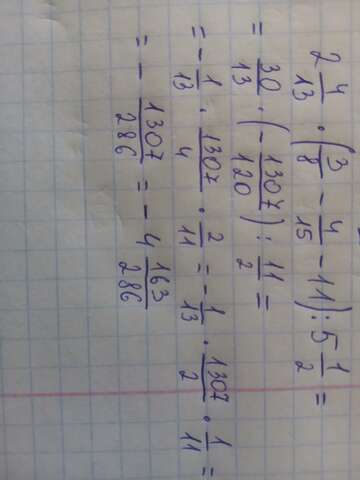 2 4/13 · (3/8 - 4/15 - 11) : 5 1/2 =
= 30/13 · (- 1307/120) : 11/2 =
= - 1/13 · 1307/4 · 2/11 = - 1/13 · 1307/2 · 1/11 =
= - 1307/286 = - 4 163/286